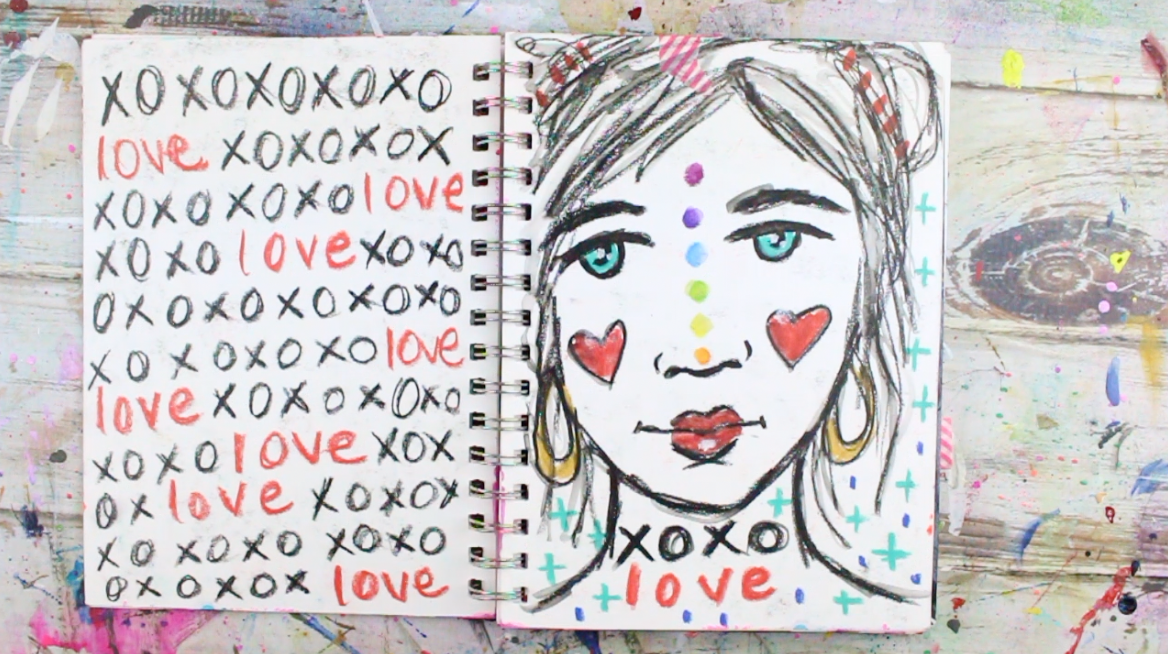 XO XOXOXOXO
love XOXOXOX
XOXO XOXO love
XO XO love XOXO
OXOXOXOXOXO
XO XOXO XO love
love XOXOXOXO
XOXO love XOX
OX love XOXOX
XO XOXO XOXO
OXOXOX love
XOXO
love